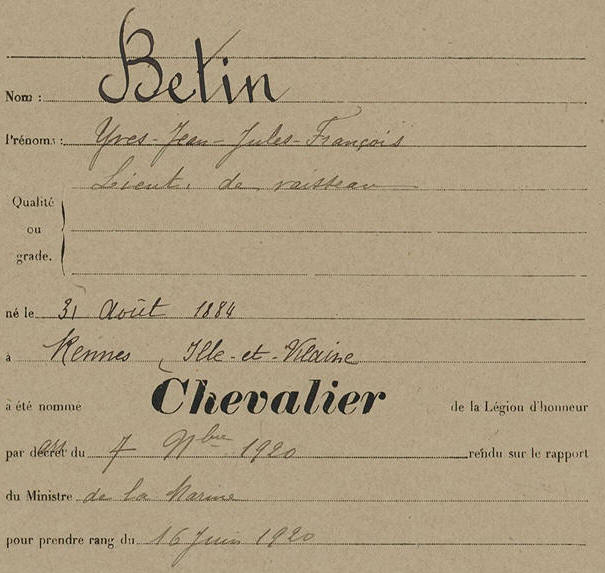 Nom : Betin
Prénoms : Yves-Jean-Jules-François
Lieut. de vaisseau
Qualité
ou
grade.
né le 31 Août 1884
à Rennes, Ille-et-Vilaine
a été nommé Chevalier de la Légion d'honneur
par décret du 7 9bre 1920 rendu sur le rapport
du Ministre de la Marine
pour prendre rang du 16 Juin 1920